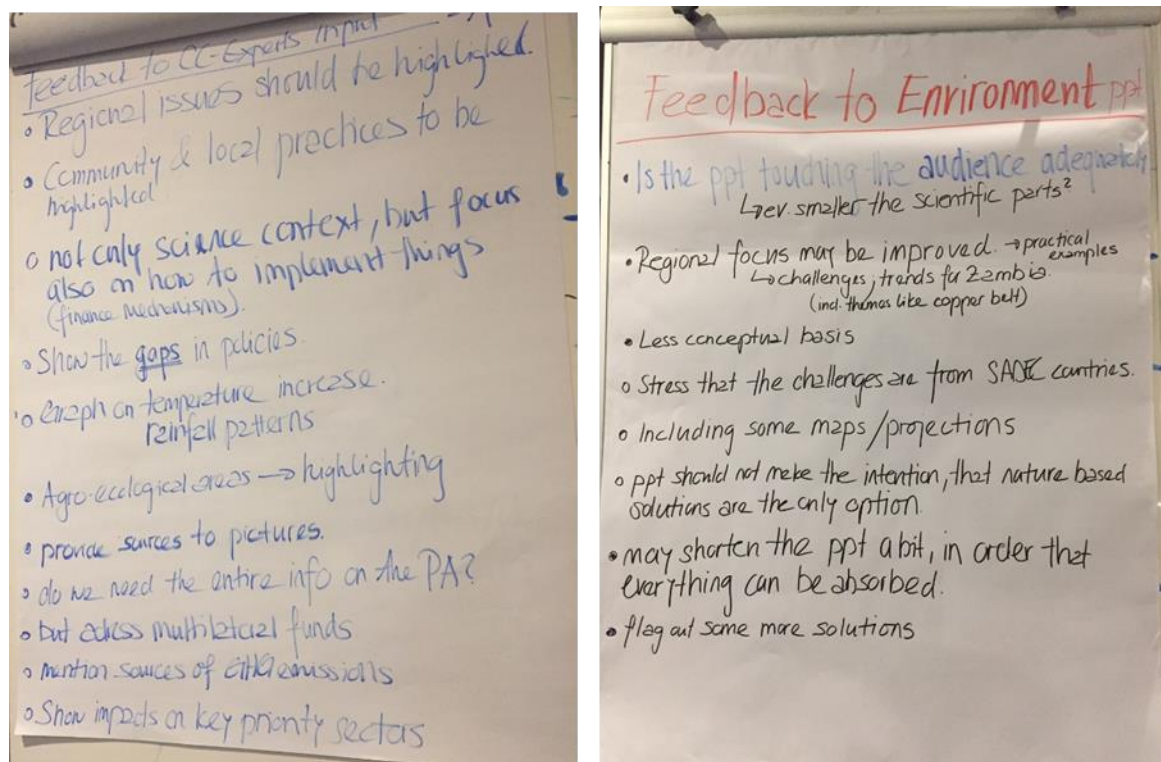 Feedback to CC-Experts input
• Regional issues should be highlighted.
• Community & local practices to be
highlighted
o not only science context, but focus
also on how to implement things
(finance mechanisms).
o Show the gaps in policies.
o Graph on temperature increase.
rainfall patterns
• Agro-ecological areas → highlighting
• provide sources to pictures.
o do we need the entire info on the PA?
o but adress multilateral funds
o mention sources of GHG emissions
o Show impacts on key priority sectors
Feedback to Environment ppt
• Is the ppt touching the audience adequately
↳ ev. smaller the scientific parts?
• Regional focus may be improved. → practical
examples
↳ challenges, trends for Zambia.
(incl. themes like copper belt)
• Less conceptual basis
o Stress that the challenges are from SADC countries.
o Including some maps/projections
o ppt should not make the intention, that nature based
solutions are the only option.
• may shorten the ppt a bit, in order that
everything can be absorbed.
• flag out some more solutions